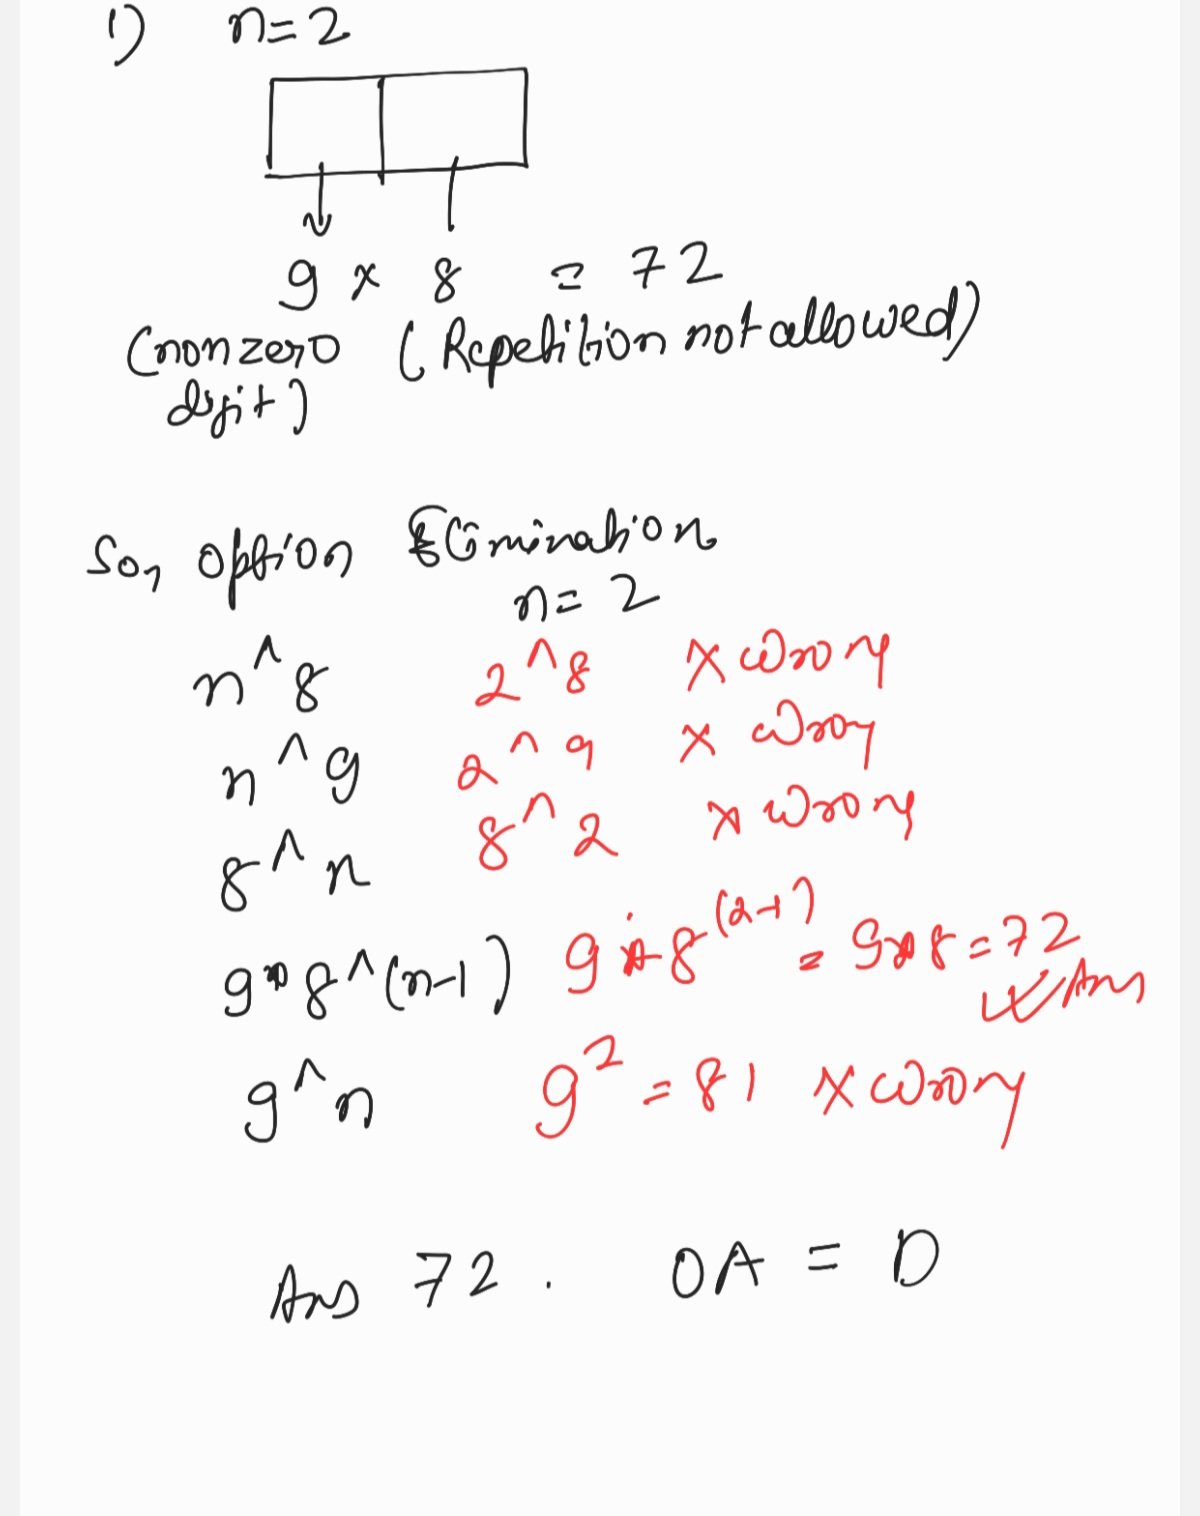 1) n=2
9 x 8 = 72
(nonzero (Repetition not allowed)
digit)
So, option Elimination
n= 2
n^8 2^8 x wrong
n^9 2^9 x wrong
8^n 8^2 x wrong
9*8^(n-1) 9*8^(2-1) = 9*8=72
Ans
9^n 9^2 = 81 x wrong
Ans 72. OA = D